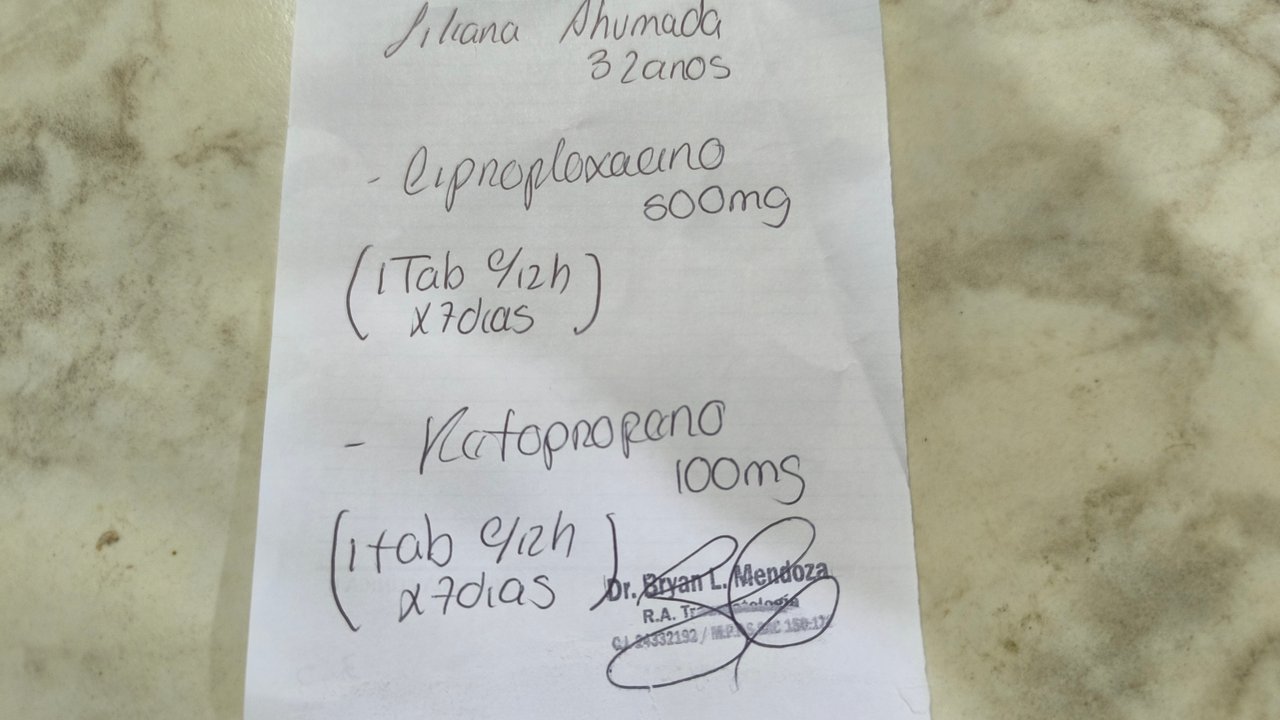 Liliana Ahumada
32anos
- Ciprofloxacino
500mg
(1 Tab c/12h
x7dias)
- Ketoprofeno
100mg
(1tab c/12h
x7dias)
Dr. Bryan L. Mendoza
R.A. Traumatología
C.I. 24332192